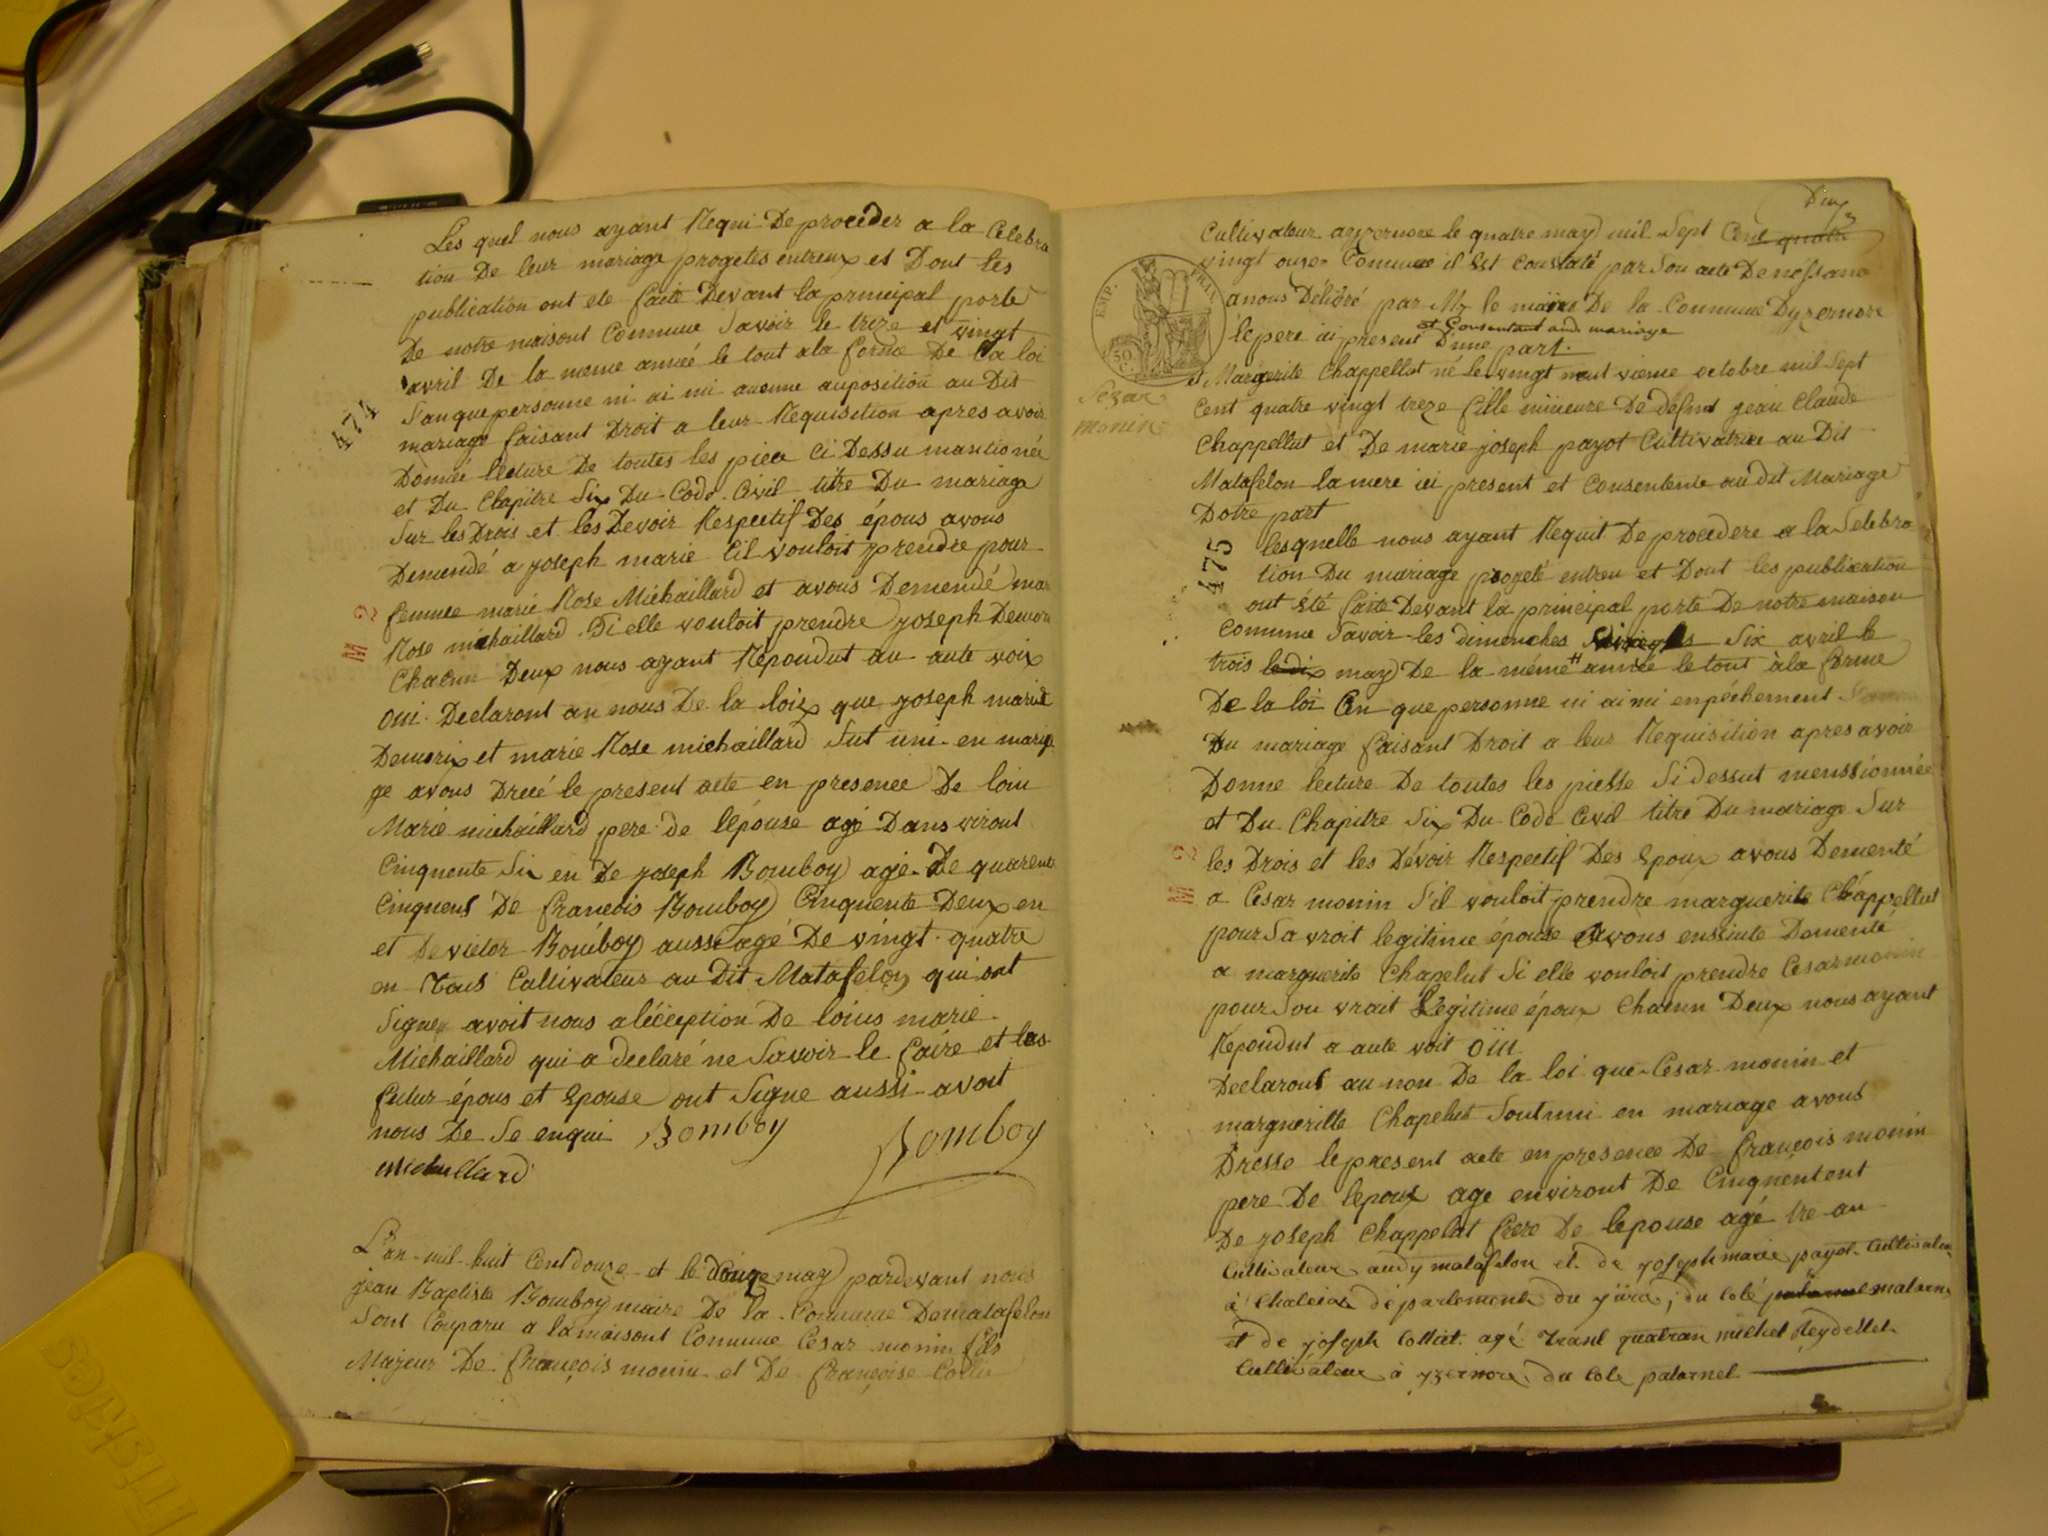 Les quel nous ayant Requi De proceder a la Celebra
tion De leur mariage progetes entreux et Dont les
publication ont ete faite Devant la principal porte
De notre maisont Commune Savoir le treze et vingt
avril De la meme anneé le tout ala forme De la loi
San que personne ni ai mi aucune auposition au Dit
mariage faisant Droit a leur Requisition apres avoir
474
Donneé lecture De toutes les piece Ci Dessu mantionée
et Du Chapitre Six Du Code Civil titre Du mariage
Sur les Drois et les Devoir Respectif Des épous avons
Demendé a joseph marie Cil vouloit prendre pour
femme marie Rose Michaillard et avons Demendé mar
M 2
Rose michaillard Si elle vouloit prendre joseph Demori
Chacun Deux nous ayant Repondut au aute voix
oui Declaront au nous De la loix que joseph marie
Demorix et marie Rose michaillard Sut uni en maria
ge avons Drecé le present acte en presence De loui
Marie michaillard pere de l'épouse agé Dans viront
Cinquente Six en De joseph Bomboy age De quarent
Cinquent De francois Bomboy Cinquente Deux en
et De victor Bomboy aussi agé De vingt quatre
en Tous Cultivateur au Dit Matafelon qui ont
Signer avoit nous aléception De loius marie
Michaillard qui a declaré ne Savoir le faire et les
futur épous et Epouse ont Signe aussi avoit
nous De Se enqui Bomboy Bomboy
michallard
L'an mil huit Cent douze et le douze may pardevant nous
jean Baptiste Bomboy maire De la Commune De matafelon
Sont Comparu a la maisont Commune Cesar monin fils
Majeur De françois monin et De françoise Collie
Deux
3
Cultivateur a yzernore le quatre may mil Sept Cent quatre
vingt onze Comme il Est Constaté par Son acte De nessance
EMP. FRAN.
50 C.
a nous Délivré par Mr le maire De la Commune Dyzernore
le pere ici present et Consentant aud mariage Dune part.
Sezar
monin
et Margerite Chappellut né le vingt neuf vieme octobre mil Sept
Cent quatre vingt treze fille mineure De défunt jean Claude
Chappellut et De marie joseph payot Cultivatrice au Dit
Matafelon la mere ici present et Consentente au dit Mariage
Dotre part
475
lesquelle nous ayant Requit De procedere a la Selebra
tion Du mariage progeté entreu et Dont les publication
ont été faite Devant la principal porte De notre maison
Comune Savoir les dimenches Six avril le
trois le dix may De la méme année le tout à la forme
De la loi En que personne ni ai mi enpéchement
Du mariage faisant Droit a leur Requisition apres avoir
Donne lecture De toutes les piesse Si dessut menssionnée
et Du Chapitre Six Du Code Civil titre Du mariage Sur
M 2
les Drois et les Dévoir Respectif Des Epoux avons Dementé
a Cesar monin S'il vouloit prendre marguerite Chappellut
pour Sa vroit legitime épouse avons enssiute Dementé
a marguerite Chapelut Si elle vouloit prendre Cesar monin
pour Son vrait Legitime époux Chacun Deux nous ayant
Repondut a aute voit oui
Declarout au non De la loi que Cesar monin et
margueritte Chapelut Sont uni en mariage avons
Dresse le present acte en presence De françois monin
pere De lepoux age environt De Cinquentent
De joseph Chappelut frere De lepouse agé tre an
Cultivateur audy matafelon et de joseph marie payot Cultivateur
à Chaleias département du jura, du Coté maternel
et de joseph Colliet agé Trant quatran michel Reydellet
Cultivateur à yzernore du Cote paternel